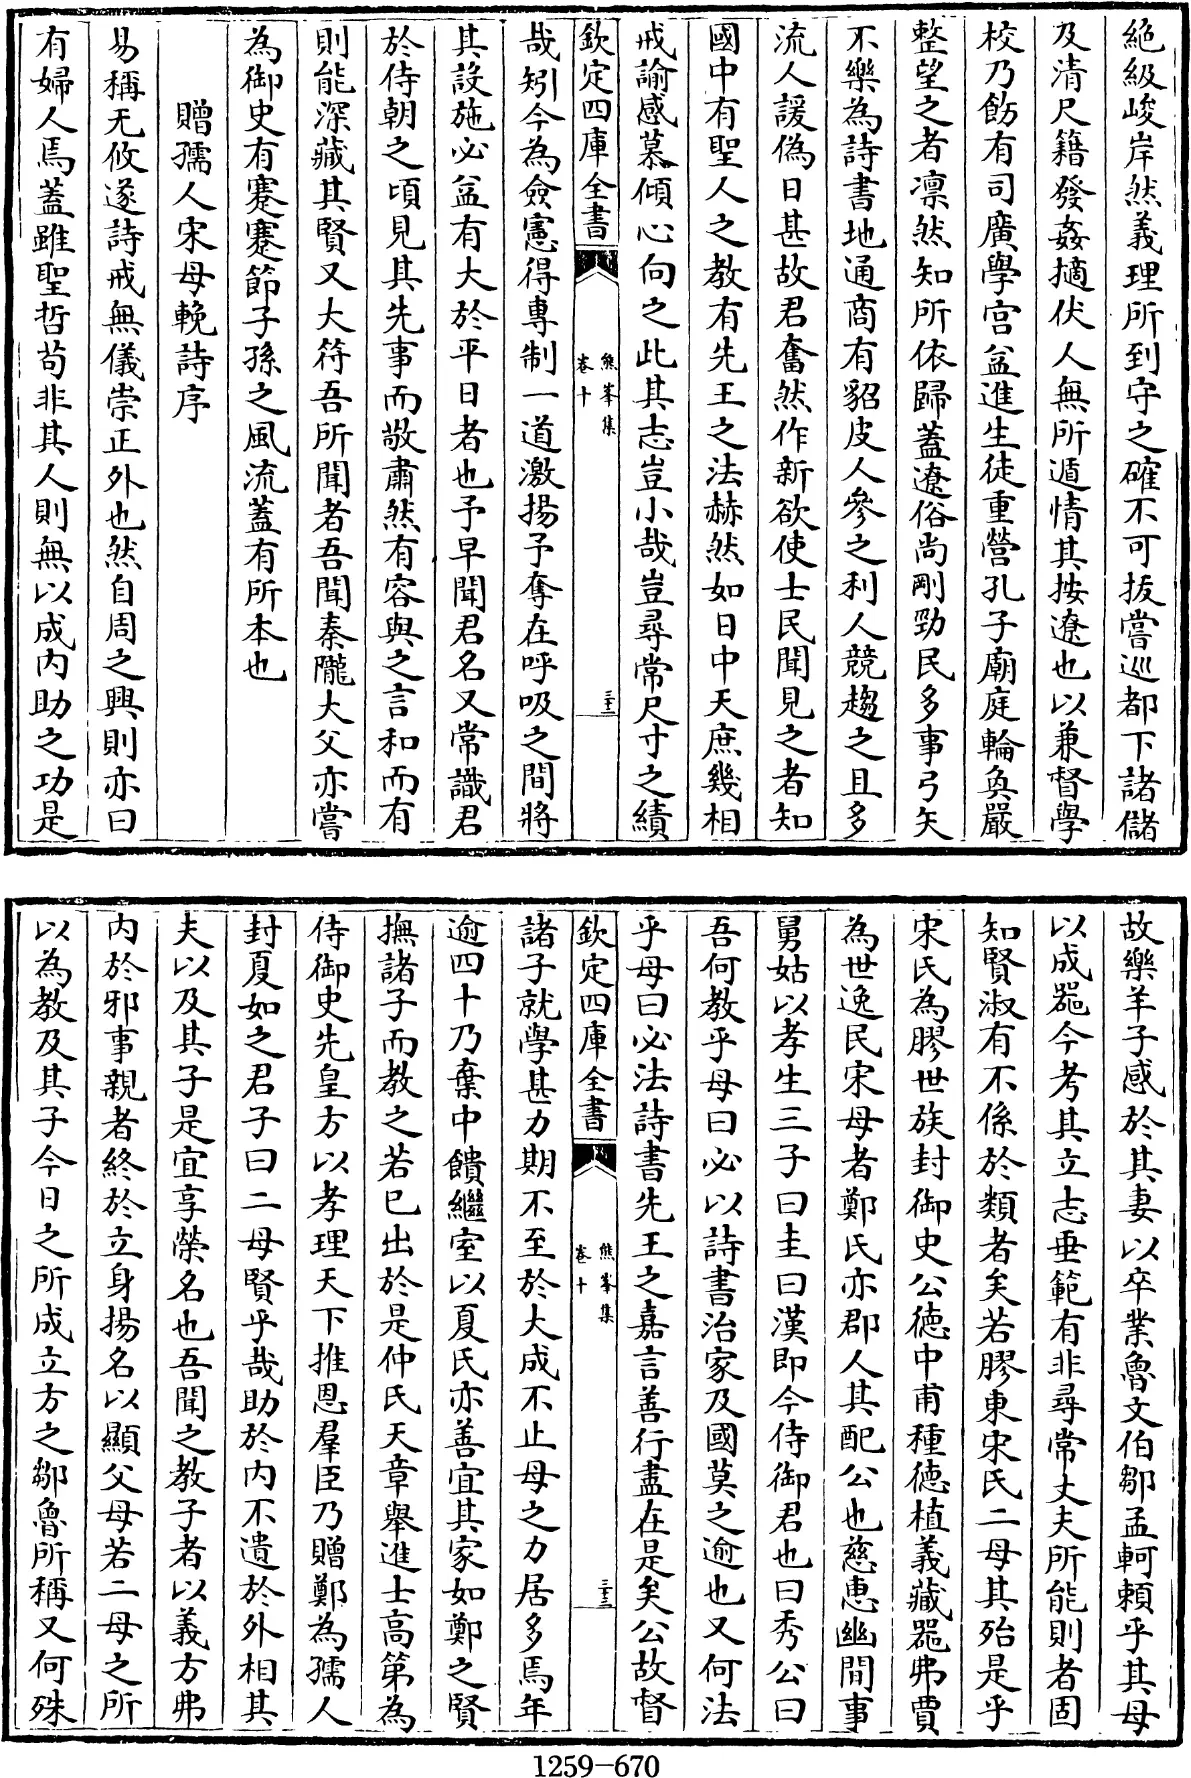 絶級峻岸然義理所到守之確不可拔嘗巡都下諸儲
及清尺籍發姦摘伏人無所遁情其按遼也以兼督學
校乃飭有司廣學宫盆進生徒重營孔子廟庭輪奐嚴
整望之者凛然知所依歸蓋遼俗尚剛勁民多事弓矢
不樂為詩書地通商有貂皮人參之利人競趨之且多
流人諼偽日甚故君奮然作新欲使士民聞見之者知
國中有聖人之教有先王之法赫然如日中天庶幾相
戒諭感慕傾心向之此其志豈小哉豈尋常尺寸之績
欽定四庫全書
熊峯集
卷十
三十二
哉矧今為僉憲得專制一道激揚予奪在呼吸之間將
其設施必盆有大於平日者也予早聞君名又常識君
於侍朝之頃見其先事而敬肅然有容與之言和而有
則能深藏其賢又大符吾所聞者吾聞秦隴大父亦嘗
為御史有蹇蹇節子孫之風流蓋有所本也
贈孺人宋母輓詩序
易稱无攸遂詩戒無儀崇正外也然自周之興則亦曰
有婦人焉蓋雖聖哲苟非其人則無以成内助之功是
故樂羊子感於其妻以卒業魯文伯鄒孟軻賴乎其母
以成噐今考其立志垂範有非尋常丈夫所能則者固
知賢淑有不係於類者矣若膠東宋氏二母其殆是乎
宋氏為膠世族封御史公德中甫種德植義藏噐弗賈
為世逸民宋母者鄭氏亦郡人其配公也慈惠幽閒事
舅姑以孝生三子曰圭曰漢即今侍御君也曰秀公曰
吾何教乎母曰必以詩書治家及國莫之逾也又何法
乎母曰必法詩書先王之嘉言善行盡在是矣公故督
欽定四庫全書
熊峯集
卷十
三十三
諸子就學甚力期不至於大成不止母之力居多焉年
逾四十乃棄中饋繼室以夏氏亦善宜其家如鄭之賢
撫諸子而教之若已出於是仲氏天章舉進士高第為
侍御史先皇方以孝理天下推恩羣臣乃贈鄭為孺人
封夏如之君子曰二母賢乎哉助於内不遺於外相其
夫以及其子是宜享榮名也吾聞之教子者以義方弗
内於邪事親者終於立身揚名以顯父母若二母之所
以為教及其子今日之所成立方之鄒魯所稱又何殊
1259-670